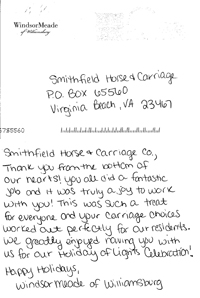 WindsorMeade
of Williamsburg
Smithfield Horse & Carriage
P.O. Box 65560
Virginia Beach, VA 23467
Smithfield Horse & Carriage Co.,
Thank you from the bottom of
our hearts! you all did a fantastic
job and it was truly a joy to work
with you! This was such a treat
for everyone and your carriage choices
worked out perfectly for our residents.
We greatly enjoyed having you with
us for our Holiday of Lights Celebration!
Happy Holidays,
Windsormeade of Williamsburg